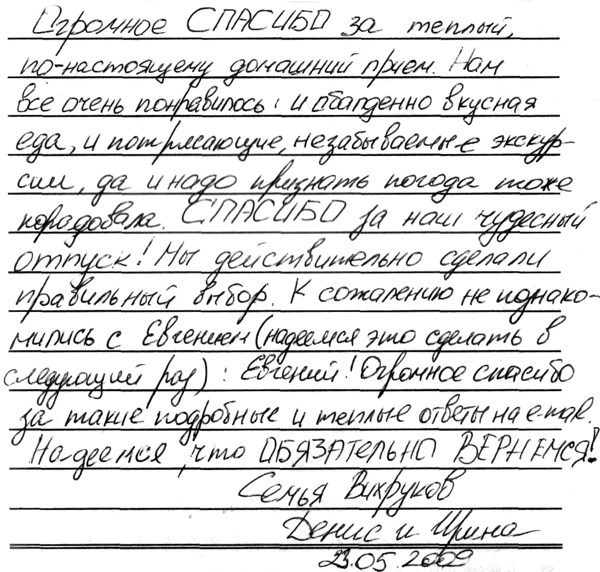 Огромное СПАСИБО за теплый,
по-настоящему домашний прием. Нам
все очень понравилось: и обалденно вкусная
еда, и потрясающие, незабываемые экскур-
сии, да и надо признать погода тоже
порадовала. СПАСИБО за наш чудесный
отпуск! Мы действительно сделали
правильный выбор. К сожалению не познако-
мились с Евгением (надеемся это сделать в
следующий раз): Евгений! Огромное спасибо
за такие подробные и теплые ответы на e-mail.
Надеемся, что ОБЯЗАТЕЛЬНО ВЕРНЕМСЯ!
Семья Вихруков
Денис и Ирина
23.05.2009